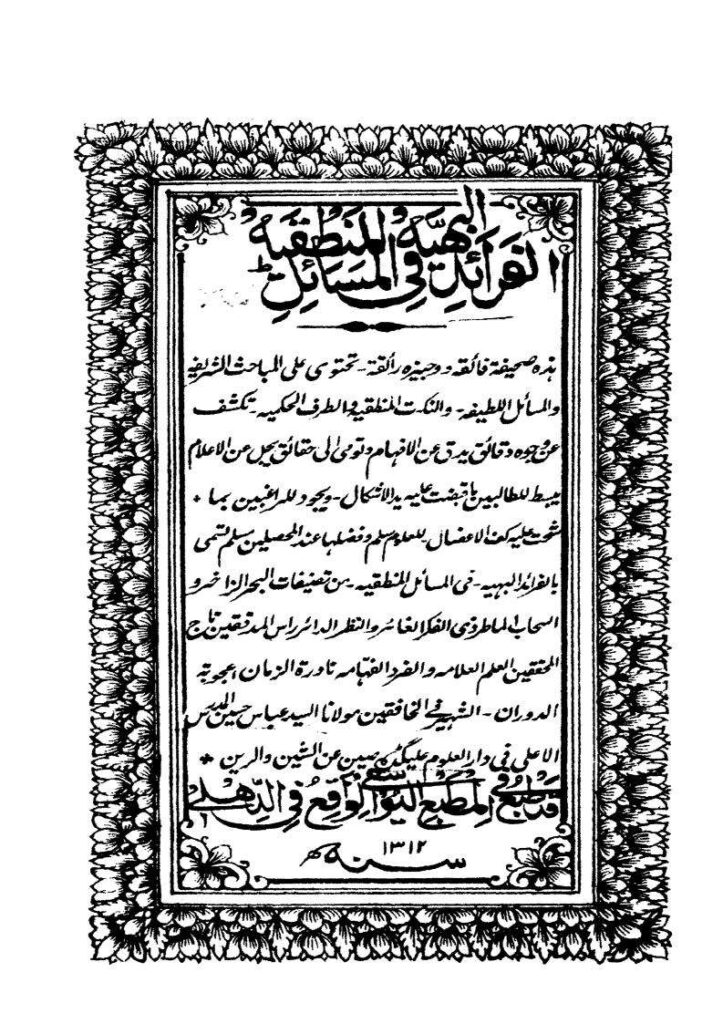 الفرائد البهية
في المسائل المنطقية
هذه صحيفة فائقه ووجيزه رائقة - تحتوى على المباحث الشريفه
والمسائل اللطيفه - والنكت المنطقيه فى الطرف الحكميه - تكشف
عن وجوه دقائق يدق عن الافهام وتومى الى حقائق يجل عن الاعلام
يبسط للطالبين ما قبضت عليه يد الاشكال - ويجود للراغبين بما *
شحت عليه كف الاعضال - للعلوم سلم وفضلها عند المحصلين مسلم تسمى
بالفرائد البهيه - فى المسائل المنطقيه - من تصنيفات البحر الزاخر و
السحاب الماطر ذى الفكر الغائر والنظر الدائر راس المدققين تاج
المحققين العلم العلامه والفرد الفهامه نادرة الزمان اعجوبة
الدوران - الشهير فى الخافقين مولانا السيد عباس حسين المدرس
الاعلى فى دار العلوم عليگڈه صين عن الشين والرين *
قد طبع فى المطبع اليوسفى الواقع فى الدهلى
سنه ١٣١٢ ھ